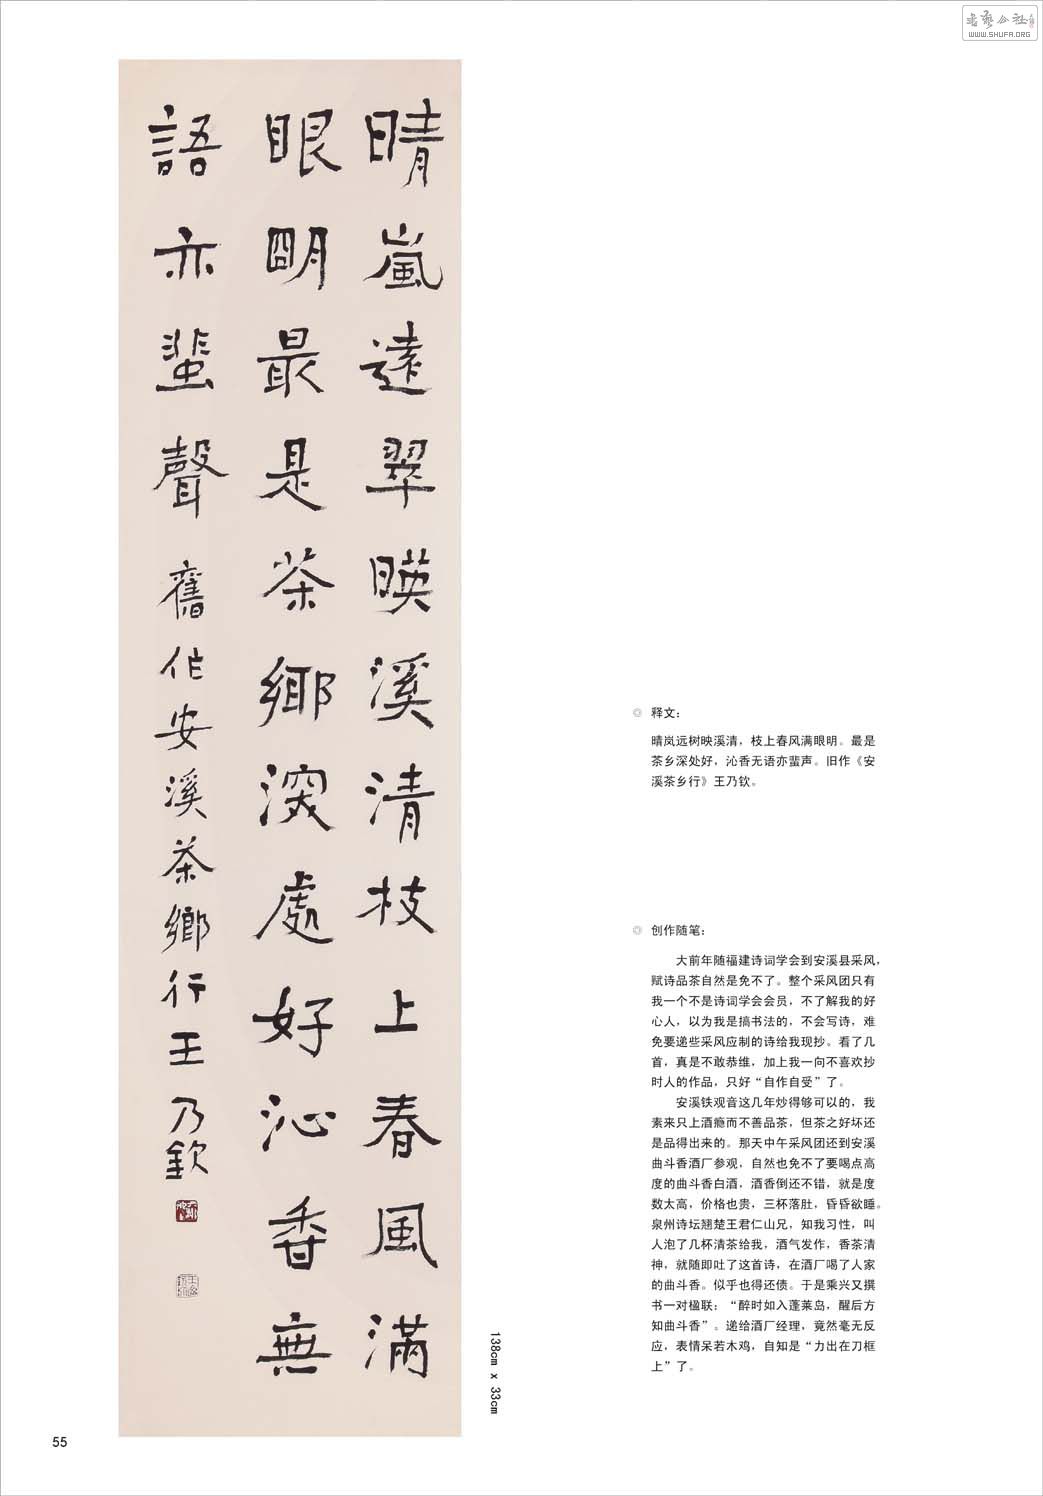 書藝公社
WWW.SHUFA.ORG
晴嵐遠翠暎溪清枝上春風滿
眼明最是茶鄉深處好沁香無
語亦蜚聲
舊作安溪茶鄉行王乃欽
138cm x 33cm
◎ 释文：
晴岚远树映溪清，枝上春风满眼明。最是
茶乡深处好，沁香无语亦蜚声。旧作《安
溪茶乡行》王乃钦。
◎ 创作随笔：
大前年随福建诗词学会到安溪县采风，
赋诗品茶自然是免不了。整个采风团只有
我一个不是诗词学会会员，不了解我的好
心人，以为我是搞书法的，不会写诗，难
免要递些采风应制的诗给我现抄。看了几
首，真是不敢恭维，加上我一向不喜欢抄
时人的作品，只好“自作自受”了。
安溪铁观音这几年炒得够可以的，我
素来只上酒瘾而不善品茶，但茶之好坏还
是品得出来的。那天中午采风团还到安溪
曲斗香酒厂参观，自然也免不了要喝点高
度的曲斗香白酒，酒香倒还不错，就是度
数太高，价格也贵，三杯落肚，昏昏欲睡。
泉州诗坛翘楚王君仁山兄，知我习性，叫
人泡了几杯清茶给我，酒气发作，香茶清
神，就随即吐了这首诗，在酒厂喝了人家
的曲斗香。似乎也得还债。于是乘兴又撰
书一对楹联：“醉时如入蓬莱岛，醒后方
知曲斗香”。递给酒厂经理，竟然毫无反
应，表情呆若木鸡，自知是“力出在刀框
上”了。
55